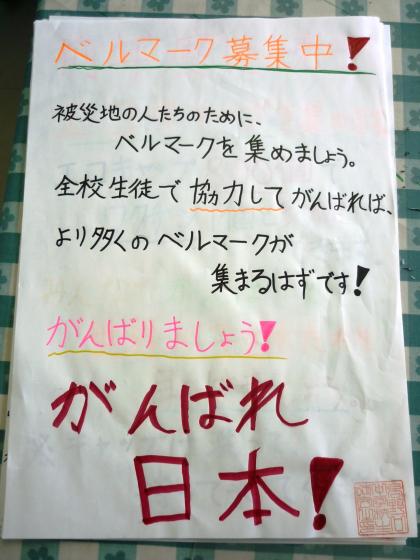 ベルマーク募集中!
被災地の人たちのために、
ベルマークを集めましょう。
全校生徒で協力してがんばれば、
より多くのベルマークが
集まるはずです!
がんばりましょう!
がんばれ
日本!